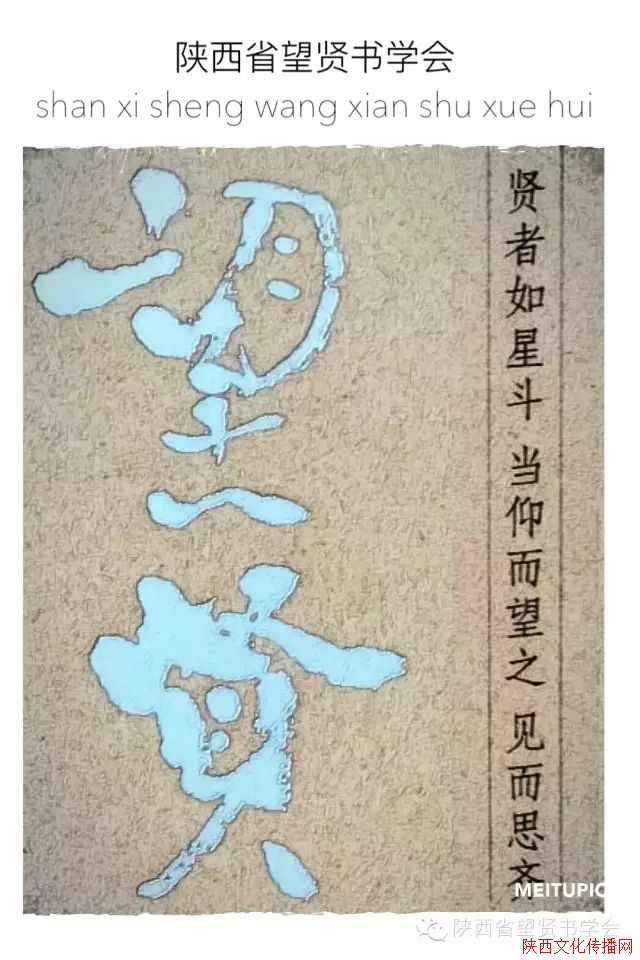 陕西省望贤书学会
shan xi sheng wang xian shu xue hui
望贤
贤者如星斗 当仰而望之 见而思齐
MEITUPIC
陕西省望贤书学会
陕西文化传播网